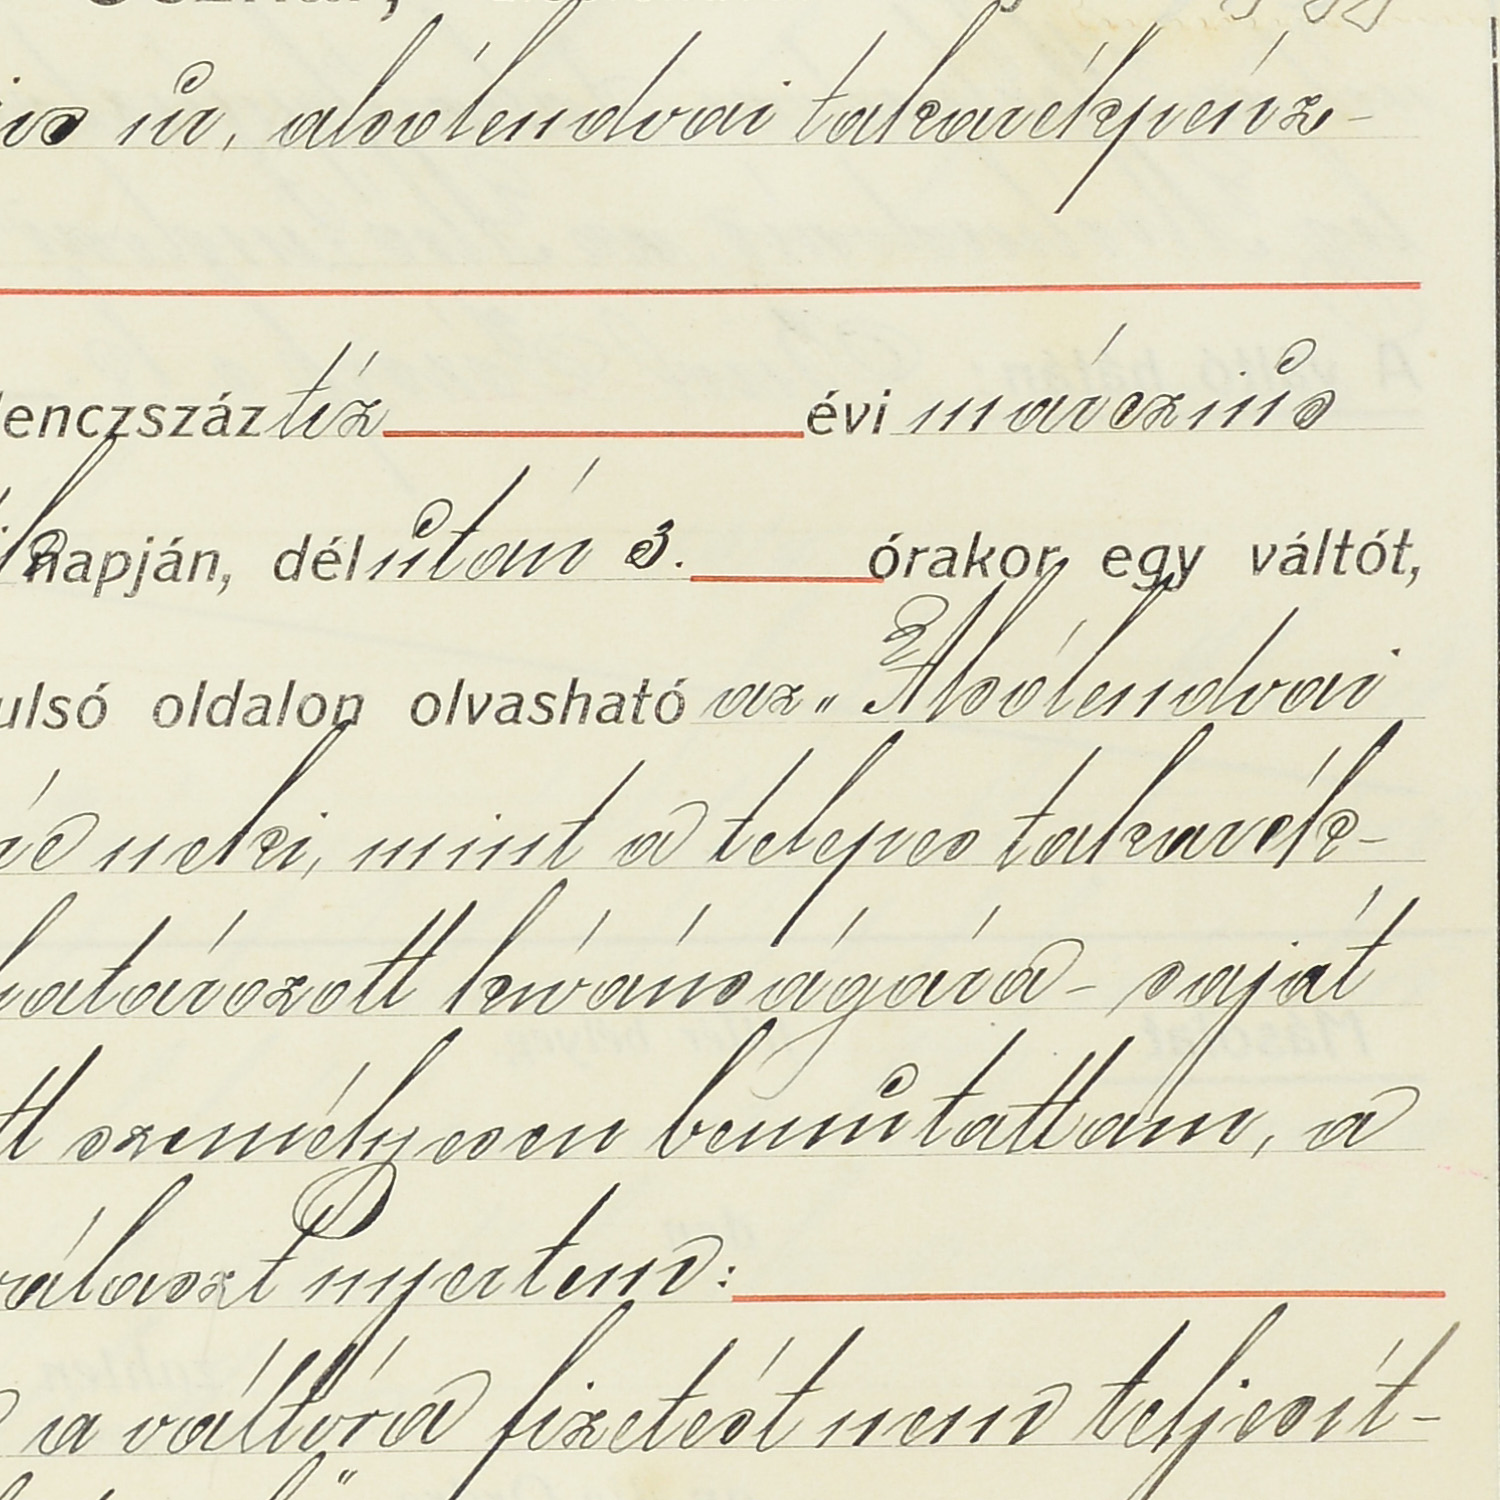 úr, alsólendvai takarékpénz-
lenczszáz tíz évi márczius
napján, délután 3. órakor egy váltót,
ulsó oldalon olvasható az „Alsólendvai
neki, mint a telepes takarék-
határozott kívánságára - saját
tt személyesen bemutattam, a
választ nyertem:
a váltóra fizetést nem teljesit-